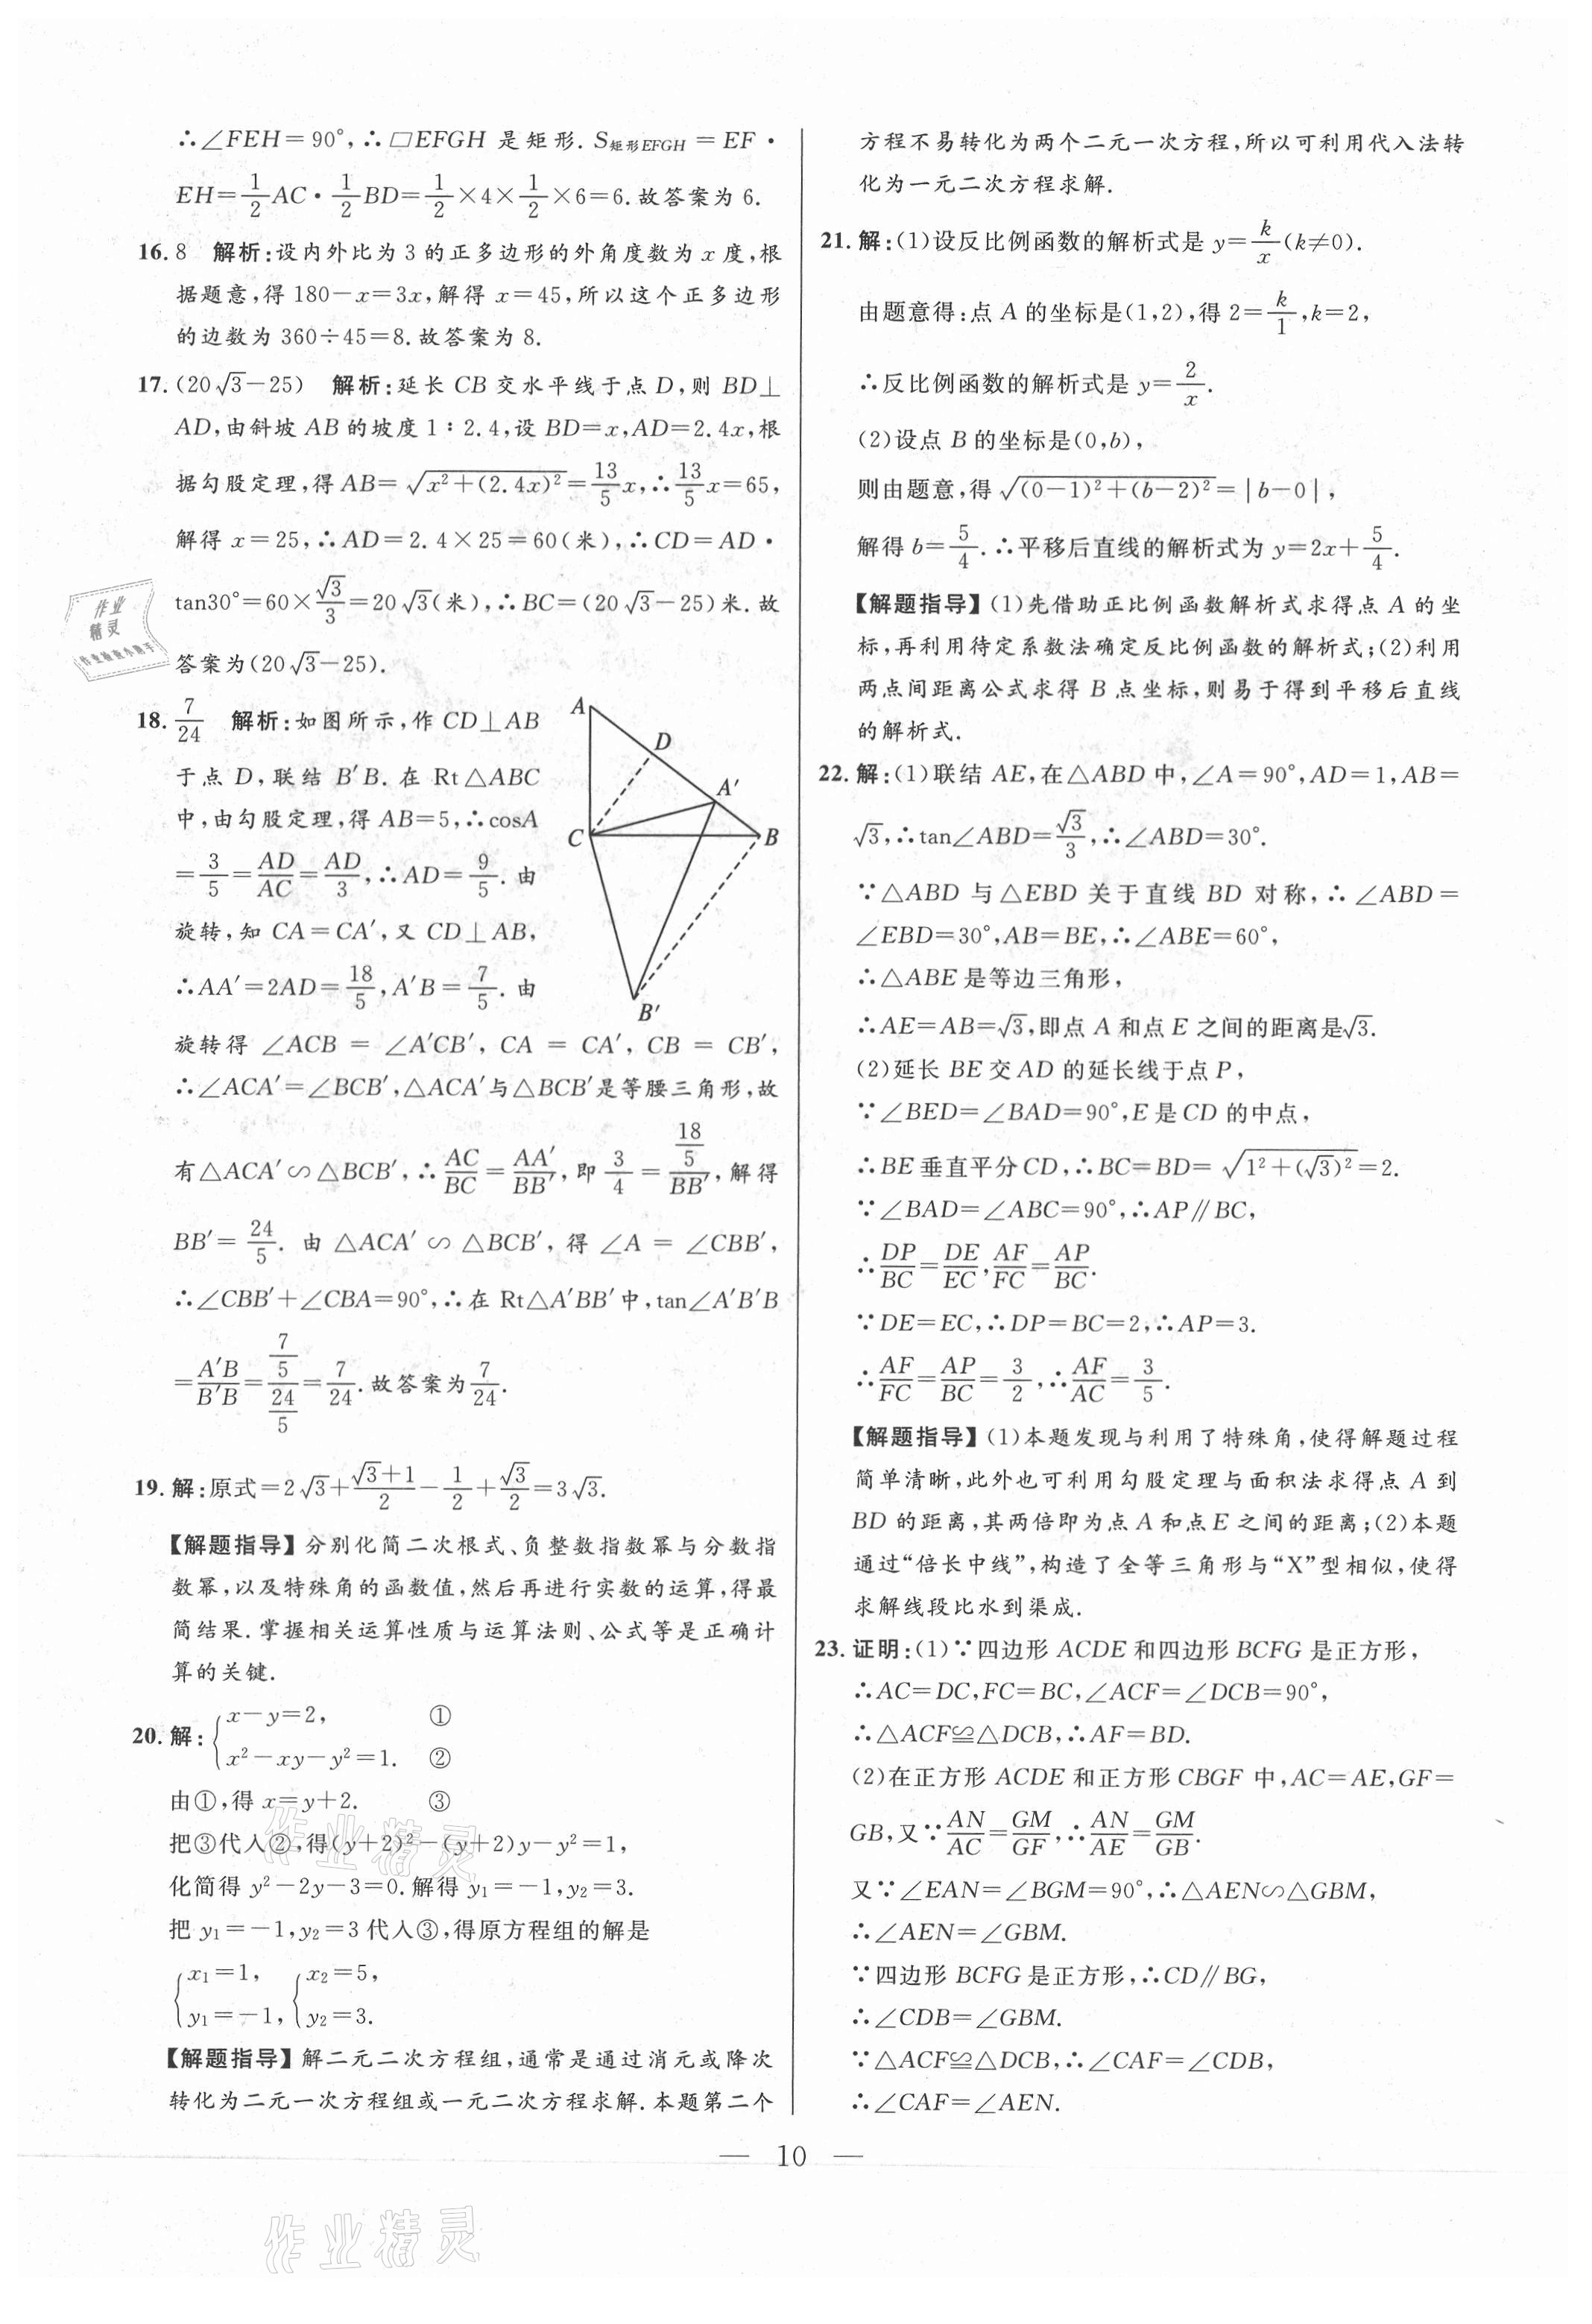 ∴∠FEH=90°,∴□EFGH 是矩形. S矩形EFGH=EF·
EH=1/2AC·1/2BD=1/2×4×1/2×6=6.故答案为 6.
16. 8 解析:设内外比为 3 的正多边形的外角度数为 x 度,根
据题意,得 180-x=3x,解得 x=45,所以这个正多边形
的边数为 360÷45=8.故答案为 8.
17. (20√3-25) 解析:延长 CB 交水平线于点 D,则 BD⊥
AD,由斜坡 AB 的坡度 1∶2.4,设 BD=x,AD=2.4x,根
据勾股定理,得 AB=√(x²+(2.4x)²)=13/5x,∴13/5x=65,
解得 x=25,∴AD=2.4×25=60(米),∴CD=AD·
tan30°=60×√3/3=20√3(米),∴BC=(20√3-25)米.故
答案为(20√3-25).
18. 7/24 解析:如图所示,作 CD⊥AB
于点 D,联结 B′B. 在 Rt△ABC
中,由勾股定理,得 AB=5,∴cosA
=3/5=AD/AC=AD/3,∴AD=9/5. 由
旋转,知 CA=CA′,又 CD⊥AB,
∴AA′=2AD=18/5,A′B=7/5. 由
A
D
A′
C
B
B′
旋转得 ∠ACB = ∠A′CB′, CA = CA′, CB = CB′,
∴∠ACA′=∠BCB′,△ACA′与△BCB′是等腰三角形,故
有△ACA′∽△BCB′,∴AC/BC=AA′/BB′,即 3/4=(18/5)/BB′,解得
BB′=24/5. 由 △ACA′ ∽ △BCB′, 得 ∠A = ∠CBB′,
∴∠CBB′+∠CBA=90°,∴在 Rt△A′BB′中,tan∠A′B′B
=A′B/B′B=(7/5)/(24/5)=7/24.故答案为7/24.
19. 解:原式=2√3+(√3+1)/2-1/2+√3/2=3√3.
【解题指导】分别化简二次根式、负整数指数幂与分数指
数幂,以及特殊角的函数值,然后再进行实数的运算,得最
简结果.掌握相关运算性质与运算法则、公式等是正确计
算的关键.
20. 解:{x-y=2, ①
x²-xy-y²=1. ②
由①,得 x=y+2. ③
把③代入②,得(y+2)²-(y+2)y-y²=1,
化简得 y²-2y-3=0.解得 y₁=-1,y₂=3.
把 y₁=-1,y₂=3 代入③,得原方程组的解是
{x₁=1, {x₂=5,
y₁=-1, y₂=3.
【解题指导】解二元二次方程组,通常是通过消元或降次
转化为二元一次方程组或一元二次方程求解.本题第二个
方程不易转化为两个二元一次方程,所以可利用代入法转
化为一元二次方程求解.
21. 解:(1)设反比例函数的解析式是 y=k/x(k≠0).
由题意得:点 A 的坐标是(1,2),得 2=k/1,k=2,
∴反比例函数的解析式是 y=2/x.
(2)设点 B 的坐标是(0,b),
则由题意,得√((0-1)²+(b-2)²)=|b-0|,
解得 b=5/4.∴平移后直线的解析式为 y=2x+5/4.
【解题指导】(1)先借助正比例函数解析式求得点 A 的坐
标,再利用待定系数法确定反比例函数的解析式;(2)利用
两点间距离公式求得 B 点坐标,则易于得到平移后直线
的解析式.
22. 解:(1)联结 AE,在△ABD 中,∠A=90°,AD=1,AB=
√3,∴tan∠ABD=√3/3,∴∠ABD=30°.
∵△ABD 与△EBD 关于直线 BD 对称,∴∠ABD=
∠EBD=30°,AB=BE,∴∠ABE=60°,
∴△ABE 是等边三角形,
∴AE=AB=√3,即点 A 和点 E 之间的距离是√3.
(2)延长 BE 交 AD 的延长线于点 P,
∵∠BED=∠BAD=90°,E 是 CD 的中点,
∴BE 垂直平分 CD,∴BC=BD=√(1²+(√3)²)=2.
∵∠BAD=∠ABC=90°,∴AP∥BC,
∴DP/BC=DE/EC,AF/FC=AP/BC.
∵DE=EC,∴DP=BC=2,∴AP=3.
∴AF/FC=AP/BC=3/2,∴AF/AC=3/5.
【解题指导】(1)本题发现与利用了特殊角,使得解题过程
简单清晰,此外也可利用勾股定理与面积法求得点 A 到
BD 的距离,其两倍即为点 A 和点 E 之间的距离;(2)本题
通过“倍长中线”,构造了全等三角形与“X”型相似,使得
求解线段比水到渠成.
23. 证明:(1)∵四边形 ACDE 和四边形 BCFG 是正方形,
∴AC=DC,FC=BC,∠ACF=∠DCB=90°,
∴△ACF≌△DCB,∴AF=BD.
(2)在正方形 ACDE 和正方形 CBGF 中,AC=AE,GF=
GB,又∵AN/AC=GM/GF,∴AN/AE=GM/GB.
又∵∠EAN=∠BGM=90°,∴△AEN∽△GBM,
∴∠AEN=∠GBM.
∵四边形 BCFG 是正方形,∴CD∥BG,
∴∠CDB=∠GBM.
∵△ACF≌△DCB,∴∠CAF=∠CDB,
∴∠CAF=∠AEN.
— 10 —
作业
精灵
作业精灵
作业精灵